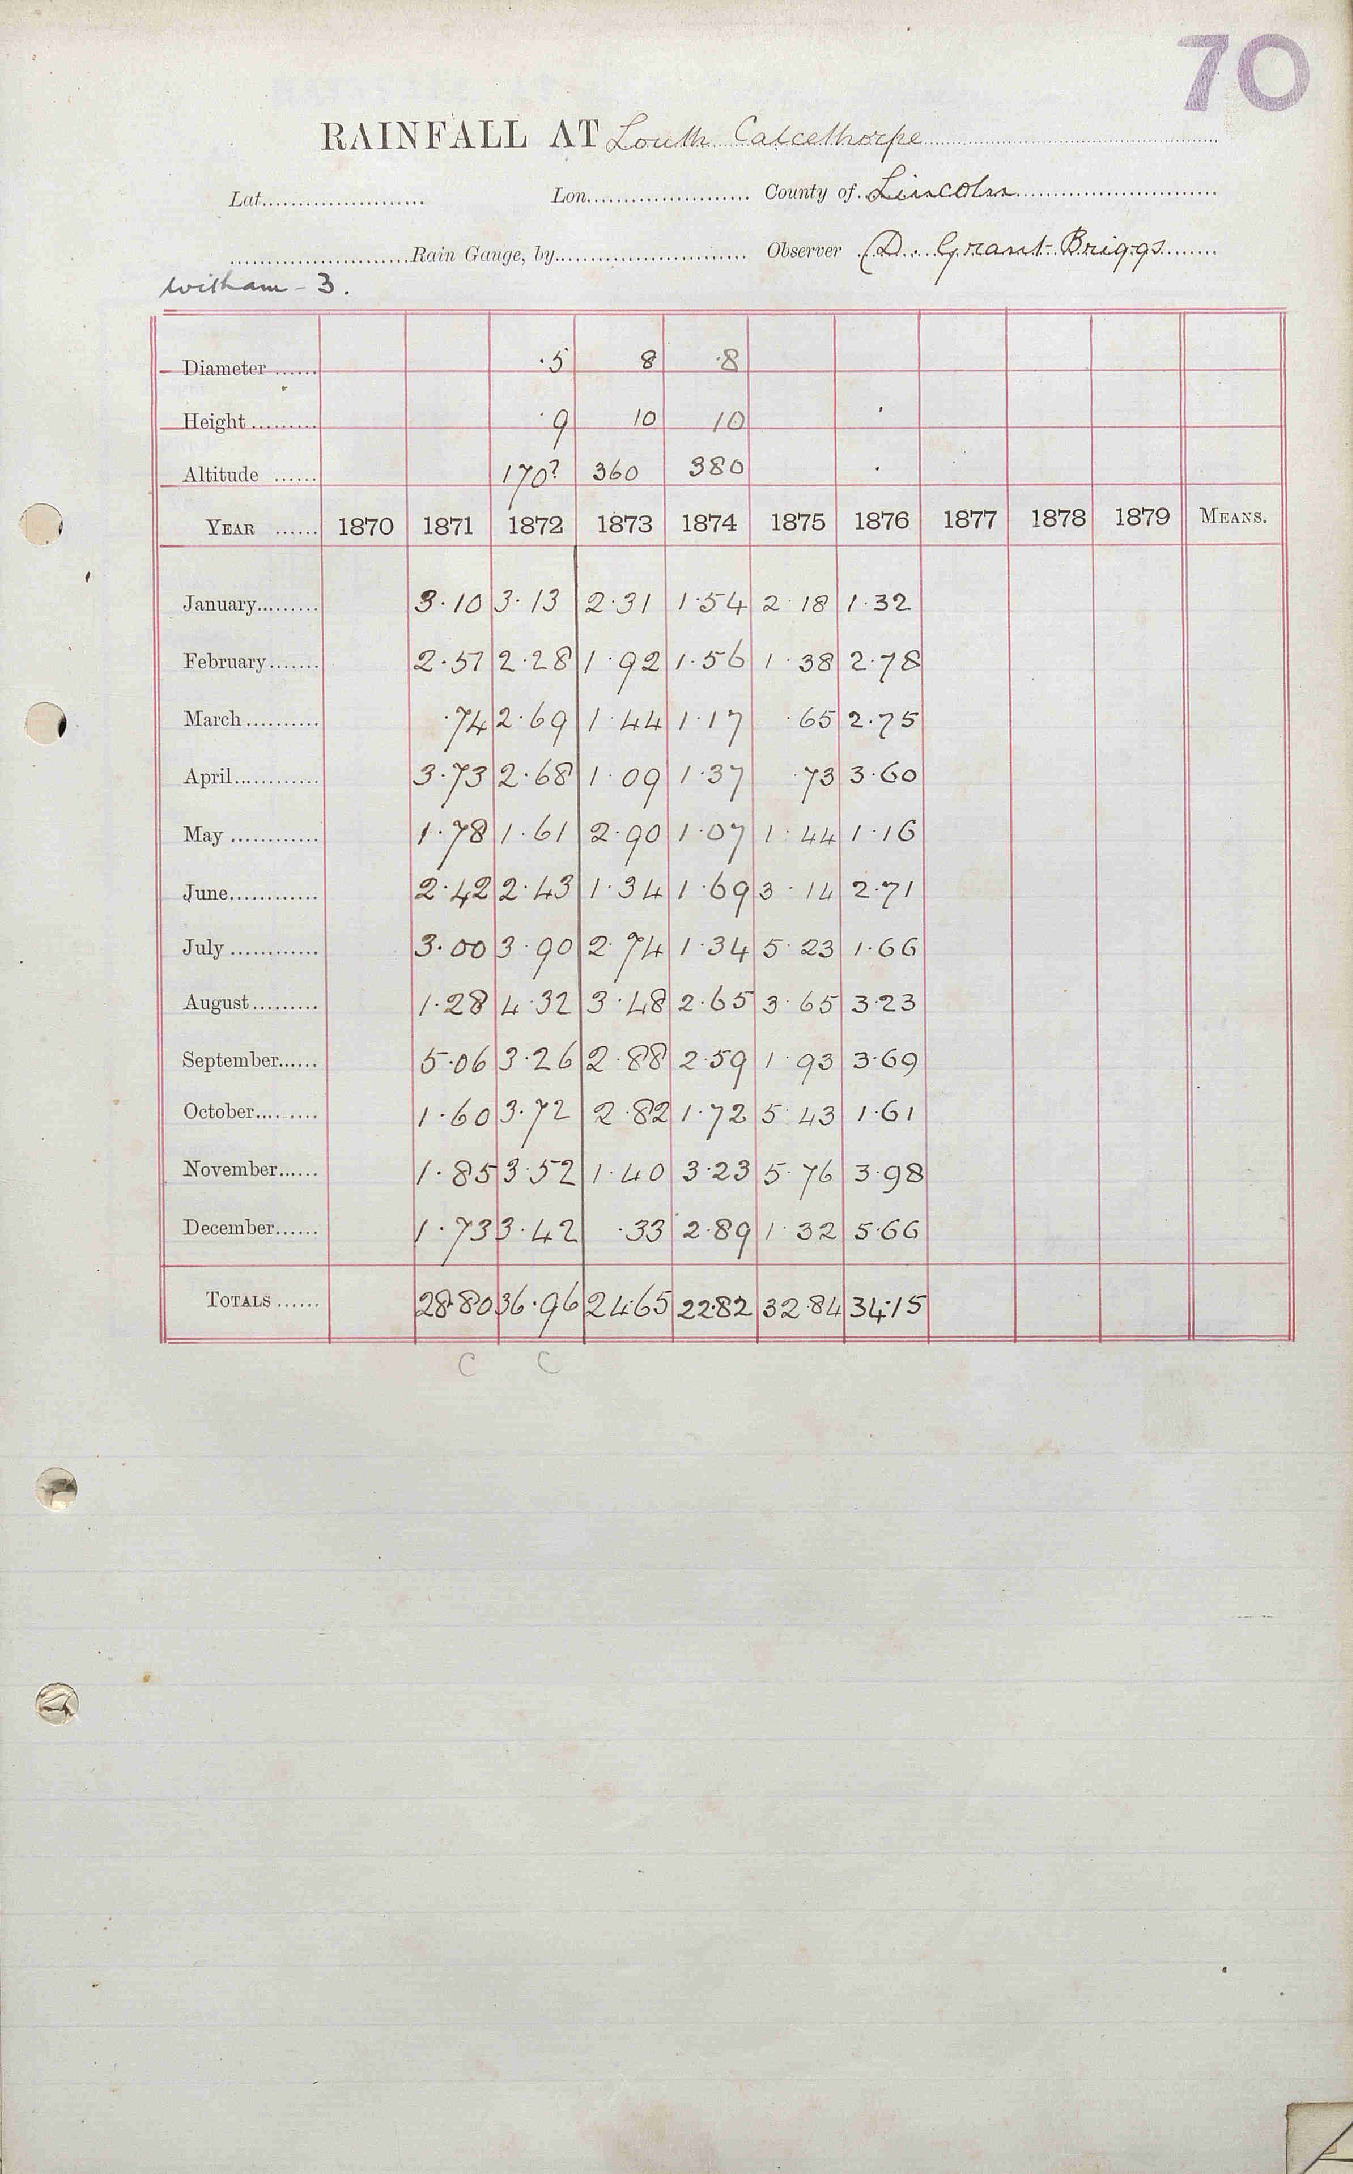 70
RAINFALL AT Louth Calcethorpe
Lat. Lon. County of Lincoln
Rain Gauge, by Observer (D. Grant-Briggs
Witham - 3.
Diameter ...... ·5 8 ·8
Height ......... 9 10 10
Altitude ...... 170? 360 380
YEAR ...... 1870 1871 1872 1873 1874 1875 1876 1877 1878 1879 MEANS.
January......... 3·10 3·13 2·31 1·54 2·18 1·32
February....... 2·51 2·28 1·92 1·56 1·38 2·78
March .......... ·74 2·69 1·44 1·17 ·65 2·75
April............ 3·73 2·68 1·09 1·37 ·73 3·60
May ............ 1·78 1·61 2·90 1·07 1·44 1·16
June............ 2·42 2·43 1·34 1·69 3·14 2·71
July ............ 3·00 3·90 2·74 1·34 5·23 1·66
August......... 1·28 4·32 3·48 2·65 3·65 3·23
September...... 5·06 3·26 2·88 2·59 1·93 3·69
October......... 1·60 3·72 2·82 1·72 5·43 1·61
November...... 1·85 3·52 1·40 3·23 5·76 3·98
December...... 1·73 3·42 ·33 2·89 1·32 5·66
TOTALS ...... 28·80 36·96 24·65 22·82 32·84 34·15
C C